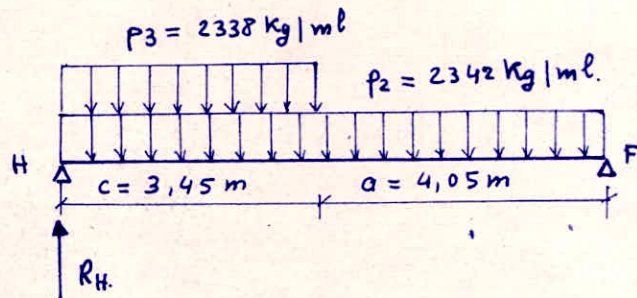 p3 = 2338 Kg/ml
p2 = 2342 Kg/ml.
H
F
c = 3,45 m
a = 4,05 m
RH.